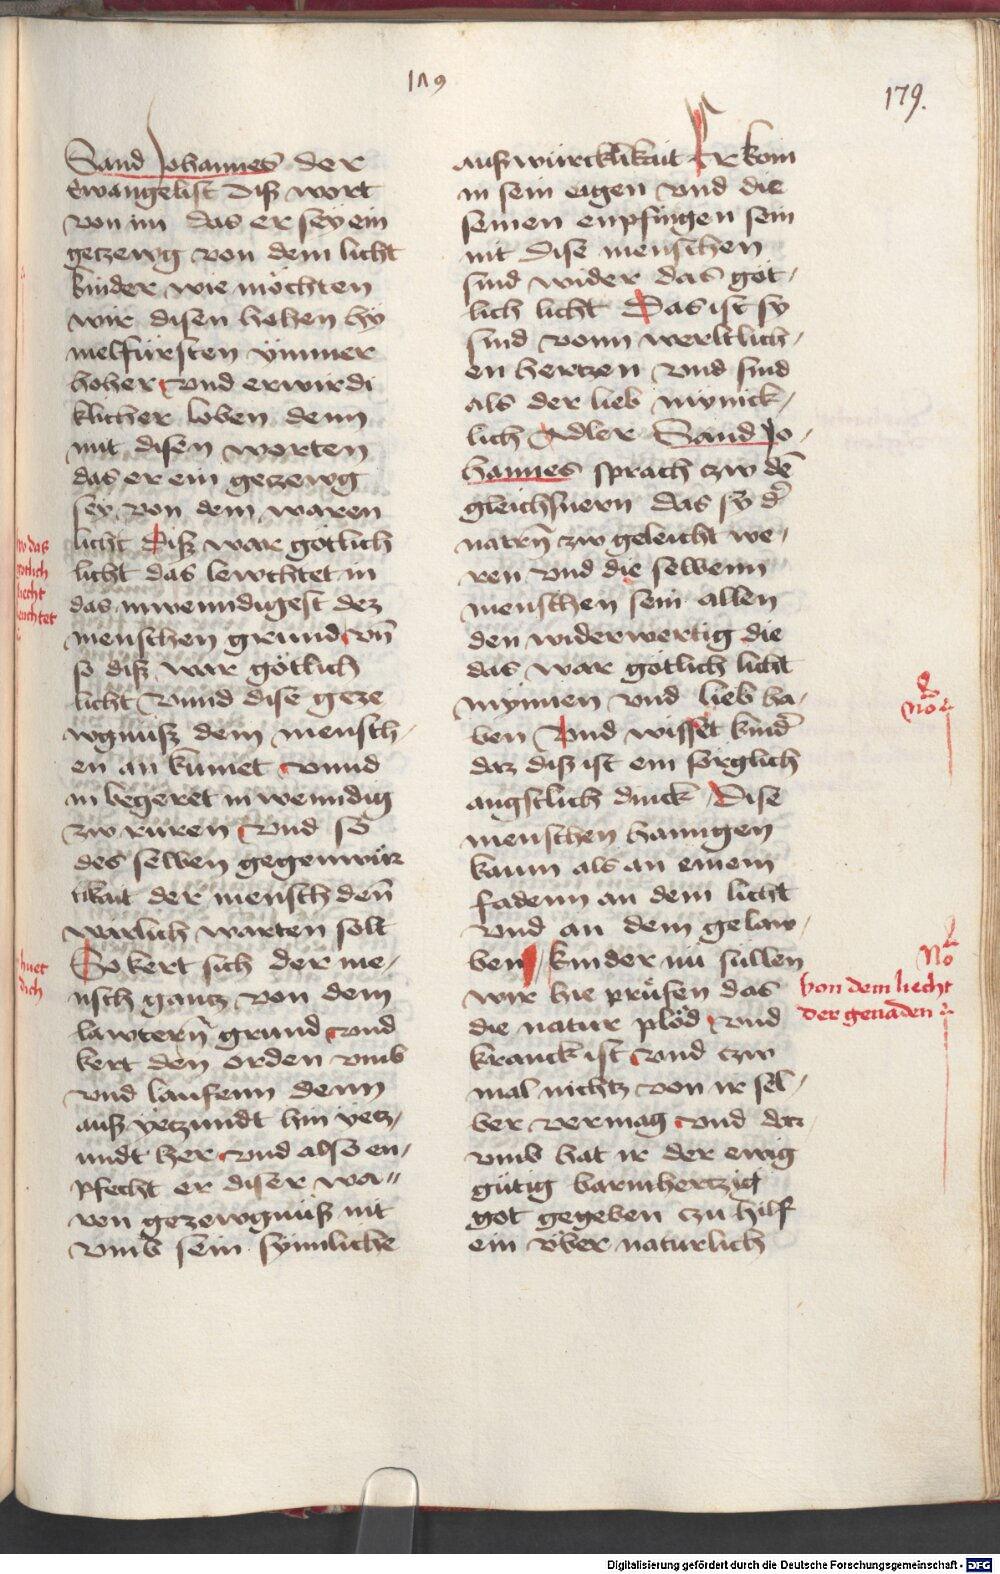 179
179.
Sand Johannes der
Ewangelist diß wort
von im das er seÿ ein
getzewg von dem licht
kinder wie möchten
wir disen hohen hÿ
melfürsten ÿmmer
hoher vnd erwirdi
klicher loben denn
mit disen worten
das er ein getzewg
seÿ von dem waren
licht diß war götlich
licht das lewchtet in
das inwenndigest dez
menschen grund vn̄
so diß war götlich
licht vnnd dise geze
wgnüß dem mensch-
en an kumet vnnd
in begeret in wenndig
zw rüren vnd so
des selben gegenwür
tikait der mensch den̄
warlich warten solt
So kert sich der me-
nsch gantz von dem
lawtern̄ grund vnd
kert den orden vmb
vnd lauffenn denn
auß ÿetzundt hin ÿetz-
undt her vnd also en-
pfecht er diser wa-
ren gezewgnüß nit
vmb sein sÿnnliche
außwürcklikait Er kom
in sein eigen vnd die
seinen enpfingen sein
nit dise menschen
sind wider das göt-
lich licht Das ist sÿ
sind vonn werltlich-
en hertzen vnd sind
als der lieb mÿnick-
lich adler Sand Jo-
hannes sprach czw dē
gleichsnern das sÿ d̄
natrn̄ zw geleicht we-
ren vnd die selbenn
menschen sein allen
den widerwertig die
das war götlich licht
mÿnnen vnd lieb ha-
ben Vnd wisset kind̄
daz diß ist ein sorglich
angstlich dinck Dise
menschen hanngen
kaum als an einem
fadenn an dem licht
vnd an dem gelaw-
ben kinder nü süllen
wir hie prüfen das
die natur plöd vnd
kranck ist vnd czw
mal nichtz von ir sel-
ber vermag vnd dar
vmb hat ir der ewig
gütig barmhertzig
got gegeben czu hilf
ein v̈ber naturlich
w das
gotlich
liecht
leuchtet
No
No
von dem liecht
der genaden
Digitalisierung gefördert durch die Deutsche Forschungsgemeinschaft - DFG